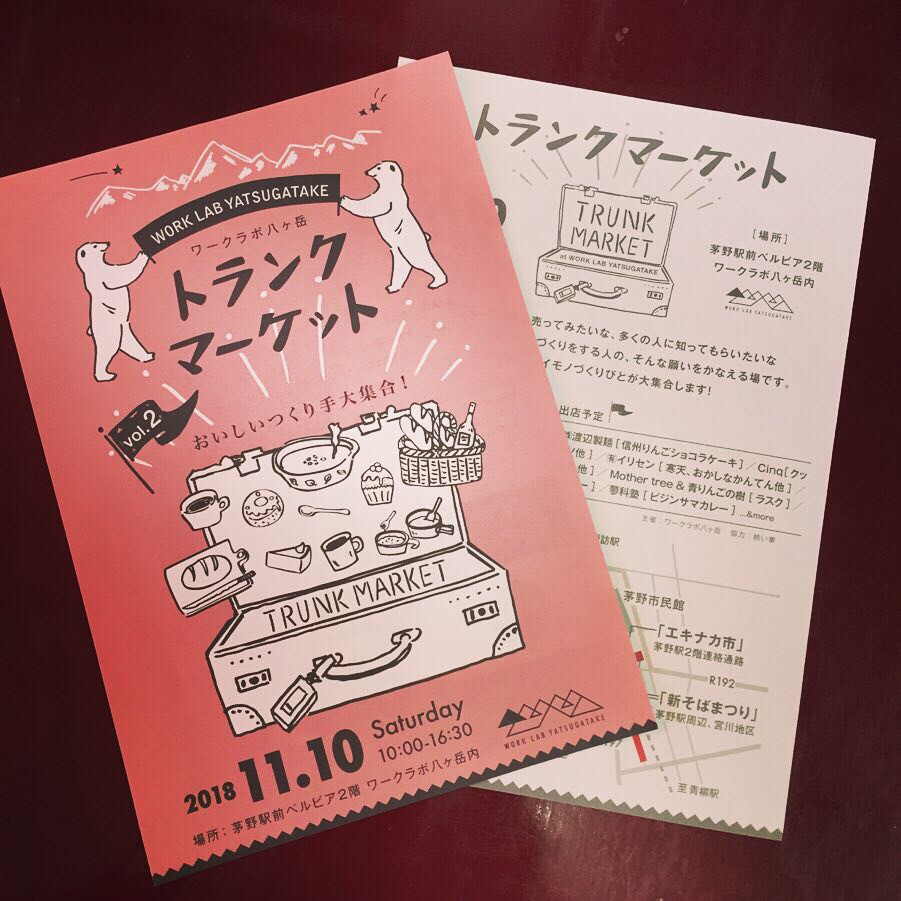 WORK LAB YATSUGATAKE
ワークラボ八ヶ岳
トランク
マーケット
vol.2
おいしいつくり手大集合！
TRUNK MARKET
2018 11.10 Saturday
10:00-16:30
WORK LAB YATSUGATAKE
場所：茅野駅前ベルビア2階 ワークラボ八ヶ岳内
トランクマーケット
TRUNK
MARKET
at WORK LAB YATSUGATAKE
［場所］
茅野駅前ベルビア2階
ワークラボ八ヶ岳内
WORK LAB YATSUGATAKE
売ってみたいな、多くの人に知ってもらいたいな
づくりをする人の、そんな願いをかなえる場です。
イモノづくりびとが大集合します！
出店予定
渡辺製麺［信州りんごショコラケーキ］／Cinq［クッ
他］／㈲イリセン［寒天、おかしなかんてん他］／
他］／Mother tree & 青りんごの樹［ラスク］／
ー］／蓼科塾［ビジンサマカレー］...&more
主催：ワークラボ八ヶ岳 協力：結い華
訪駅
茅野市民館
「エキナカ市」
茅野駅2階連絡通路
R192
「新そばまつり」
茅野駅周辺、宮川地区
至青柳駅